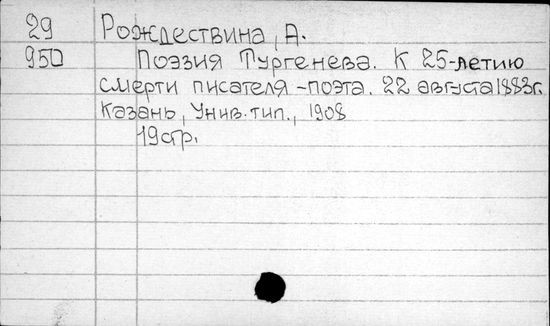 29 Рождествина, А.
950 Поэзия Тургенева. К 25-летию
смерти писателя-поэта. 22 августа 1883г.
Казань, Унив. тип., 1908
19стр.